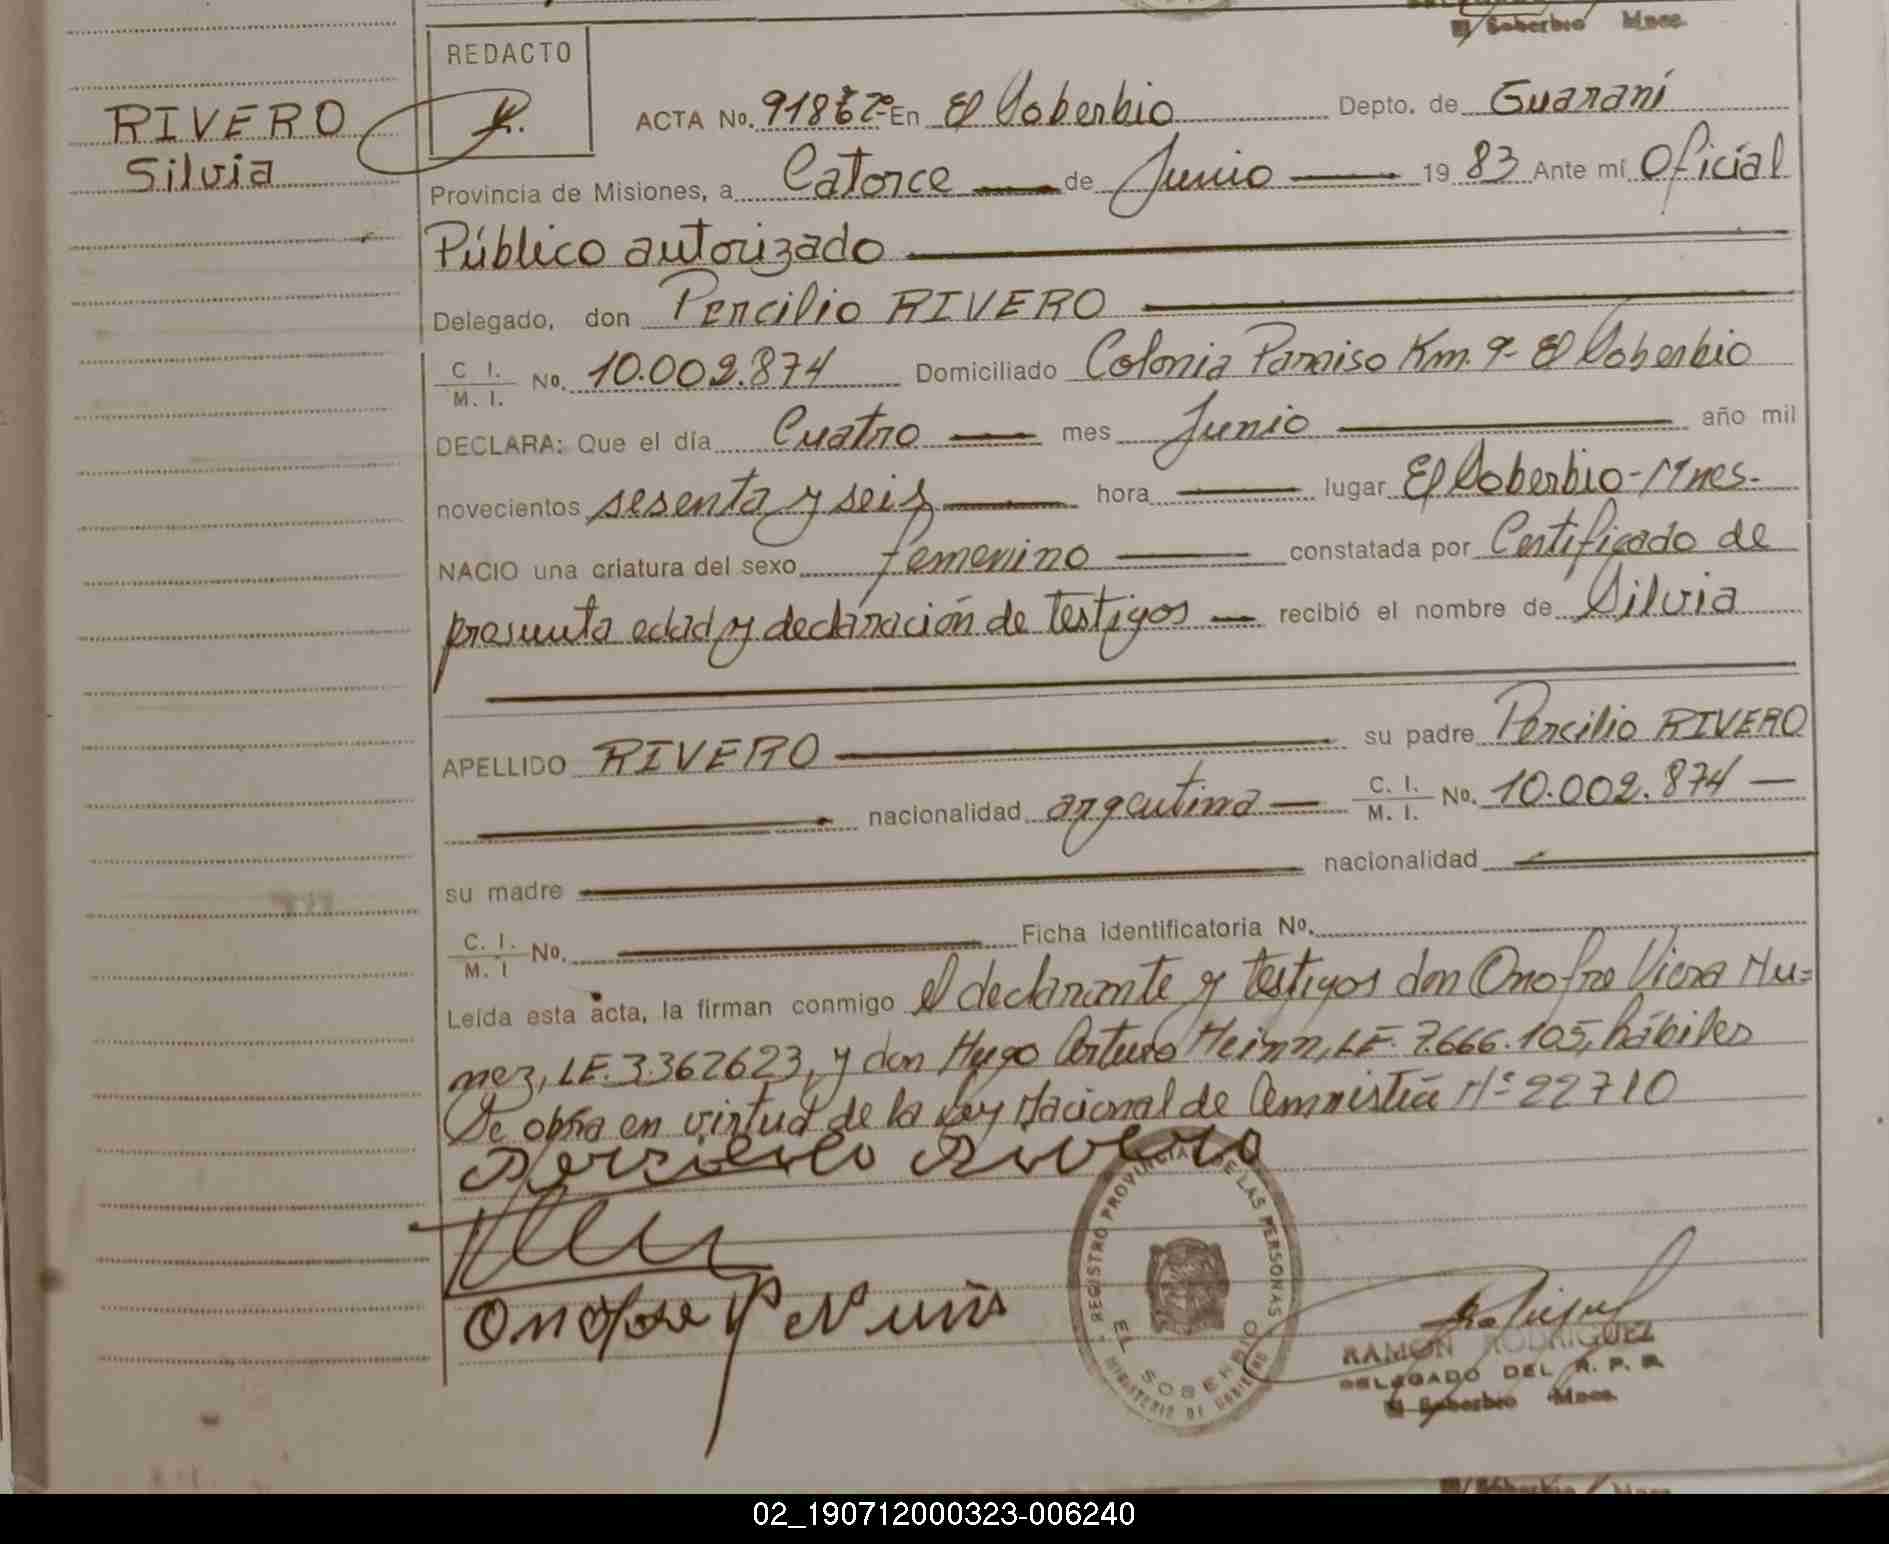 El Soberbio Mnes.
REDACTO
RIVERO
Silvia
ACTA No. En El Soberbio Depto. de Guaraní
Provincia de Misiones, a Catorce de Junio 1983 Ante mí Oficial
Público autorizado
Delegado, don Percilio RIVERO
C. I. / M. I. No. 10.002.874 Domiciliado Colonia Paraiso Km. 9- El Soberbio
DECLARA: Que el día Cuatro mes Junio año mil
novecientos sesenta y seis hora lugar El Soberbio-Mnes.
NACIO una criatura del sexo femenino constatada por Certificado de
presunta edad y declaración de Testigos recibió el nombre de Silvia
APELLIDO RIVERO su padre Percilio RIVERO
nacionalidad argentina C. I. / M. I. No. 10.002.874
su madre nacionalidad
C. I. / M. I No. Ficha identificatoria No.
Leída esta acta, la firman conmigo el declarante y Testigos don Onofre Viera Nu=
nez, LE. 3.362623, y don Hugo Arturo Heinn, LE. 7.666.105, hábiles
Se obra en virtud de la Ley Nacional de Amnistía Nº 22710
Persilio Rivero
REGISTRO PROVINCIAL DE LAS PERSONAS
EL SOBERBIO
MINISTERIO DE GOBIERNO
RAMON RODRIGUEZ
DELEGADO DEL R. P. P.
El Soberbio Mnes.
El Soberbio Mnes.
02_190712000323-006240